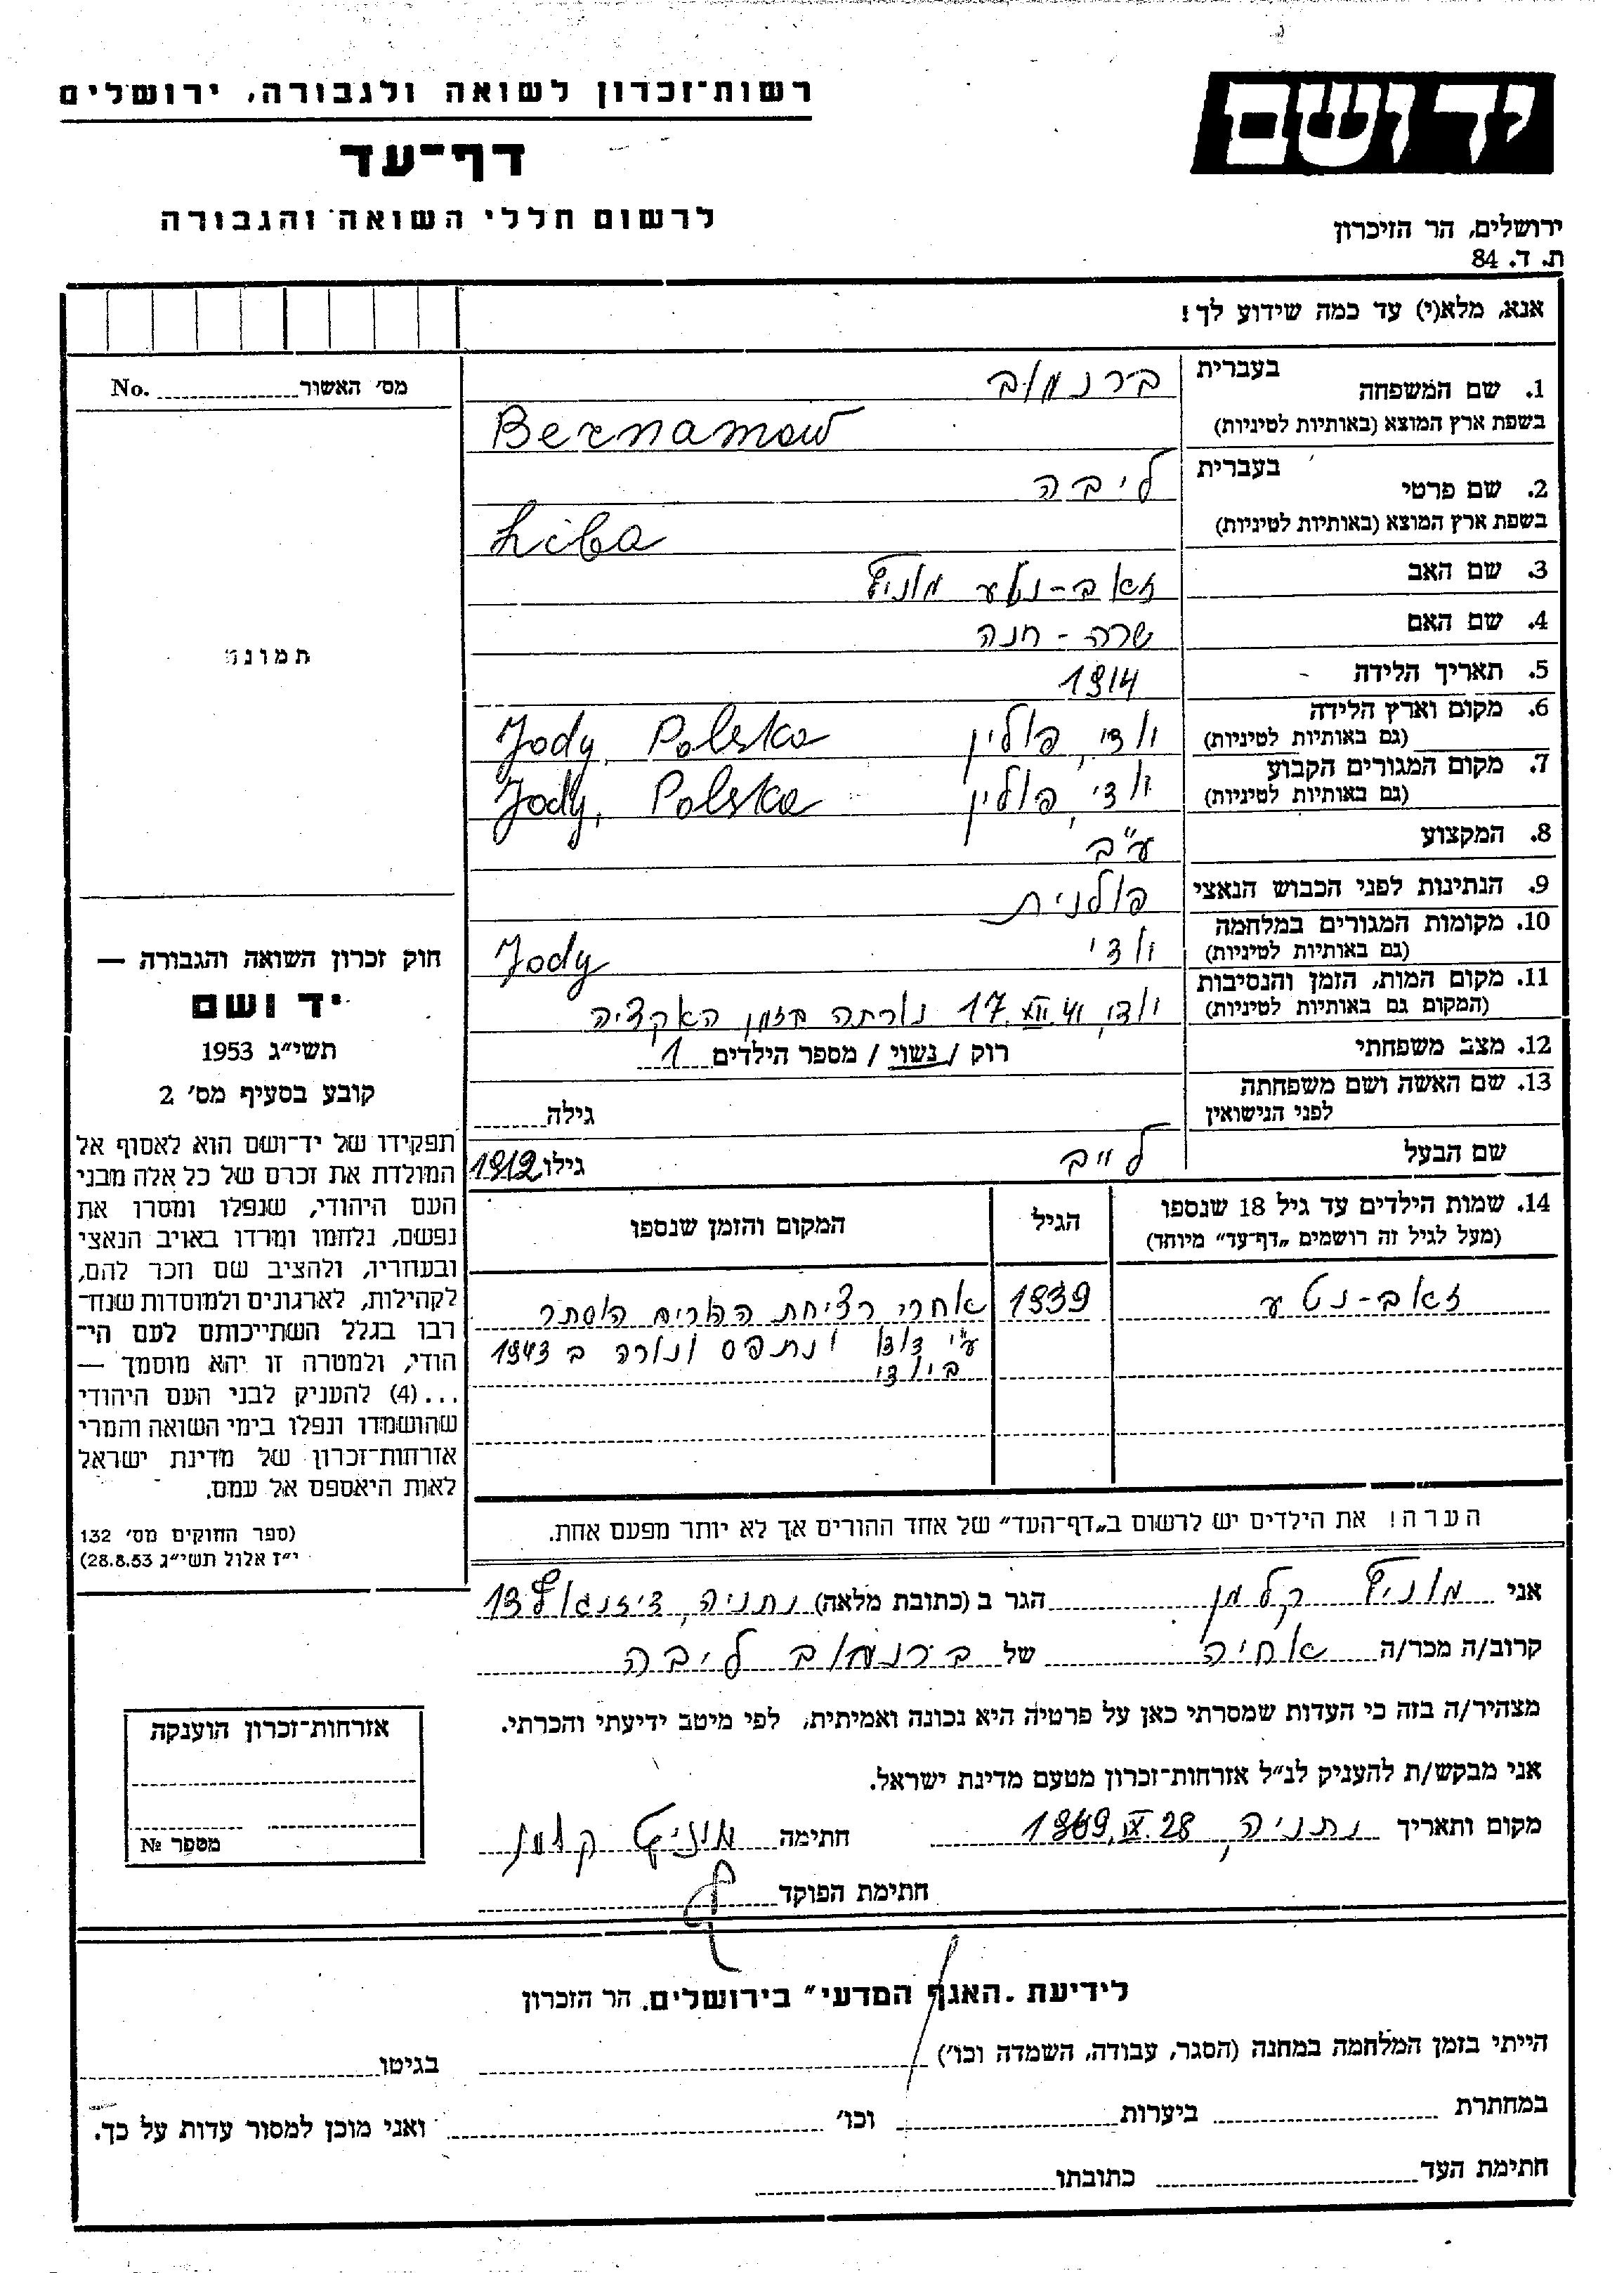 יד ושם
רשות־זכרון לשואה ולגבורה, ירושלים
דף־עד
לרשום חללי השואה והגבורה
ירושלים, הר הזיכרון
ת. ד. 84
אנא, מלא(י) עד כמה שידוע לך!
מס׳ האשור No.
תמונה
1. שם המשפחה בעברית ברנמוב
בשפת ארץ המוצא (באותיות לטיניות) Bernamow
2. שם פרטי בעברית ליבה
בשפת ארץ המוצא (באותיות לטיניות) Liba
3. שם האב זאב-נטע מוניץ
4. שם האם שרה - חנה
5. תאריך הלידה 1914
6. מקום וארץ הלידה (גם באותיות לטיניות) יודי, פולין Jody, Polska
7. מקום המגורים הקבוע (גם באותיות לטיניות) יודי, פולין Jody, Polska
8. המקצוע ע"ב
9. הנתינות לפני הכבוש הנאצי פולנית
10. מקומות המגורים במלחמה (גם באותיות לטיניות) יודי Jody
11. מקום המות, הזמן והנסיבות (המקום גם באותיות לטיניות) יודי, 17.XII.41 נורתה בזמן האקציה
12. מצב משפחתי רוק / נשוי / מספר הילדים 1
13. שם האשה ושם משפחתה לפני הנישואין גילה
שם הבעל לייב גילו 1912
14. שמות הילדים עד גיל 18 שנספו
(מעל לגיל זה רושמים „דף־עד" מיוחד)
הגיל
המקום והזמן שנספו
זאב-נטע 1939 אחרי רציחת ההורים הוסתר
ע"י דודו ונתפס ונורה ב 1943
ביודי
הערה! את הילדים יש לרשום ב„דף־העד" של אחד ההורים אך לא יותר מפעם אחת.
חוק זכרון השואה והגבורה —
יד ושם
תשי״ג 1953
קובע בסעיף מס׳ 2
תפקידו של יד־ושם הוא לאסוף אל
המולדת את זכרם של כל אלה מבני
העם היהודי, שנפלו ומסרו את
נפשם, נלחמו ומרדו באויב הנאצי
ובעוזריו, ולהציב שם וזכר להם,
לקהילות, לארגונים ולמוסדות שנח־
רבו בגלל השתייכותם לעם הי־
הודי, ולמטרה זו יהא מוסמך —
...(4) להעניק לבני העם היהודי
שהושמדו ונפלו בימי השואה והמרי
אזרחות־זכרון של מדינת ישראל
לאות היאספם אל עמם.
(ספר החוקים מס׳ 132
י״ז אלול תשי״ג 28.8.53)
אני מוניץ קלמן הגר ב (כתובת מלאה) נתניה, דיזנגוף 13
קרוב/ה מכר/ה אחיה של ברנמוב ליבה
מצהיר/ה בזה כי העדות שמסרתי כאן על פרטיה היא נכונה ואמיתית, לפי מיטב ידיעתי והכרתי.
אני מבקש/ת להעניק לנ״ל אזרחות־זכרון מטעם מדינת ישראל.
מקום ותאריך נתניה, 28.IX.1969 חתימה מוניץ קלמן
חתימת הפוקד
אזרחות־זכרון הוענקה
מספר №
לידיעת „האגף המדעי" בירושלים, הר הזכרון
הייתי בזמן המלחמה במחנה (הסגר, עבודה, השמדה וכו׳) בגיטו
במחתרת ביערות וכו׳ ואני מוכן למסור עדות על כך.
חתימת העד כתובתו